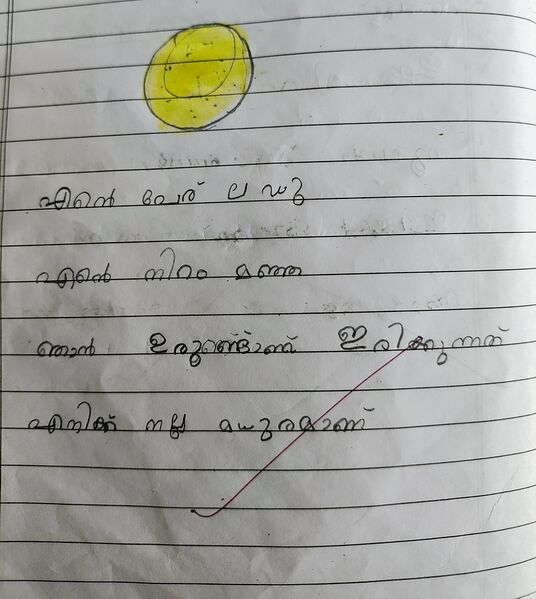 എന്റെ പേര് ലഡു
എന്റെ നിറം മഞ്ഞ
ഞാൻ ഉരുണ്ടാണ് ഇരിക്കുന്നത്
എനിക്ക് നല്ല മധുരമാണ്